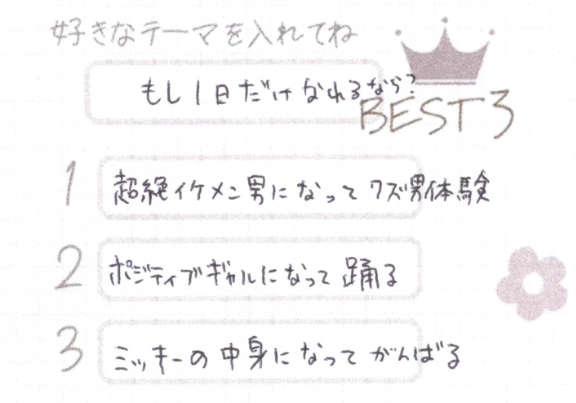 好きなテーマを入れてね
もし1日だけなれるなら?
BEST3
1 超絶イケメン男になってクズ男体験
2 ポジティブギャルになって踊る
3 ミッキーの中身になってがんばる